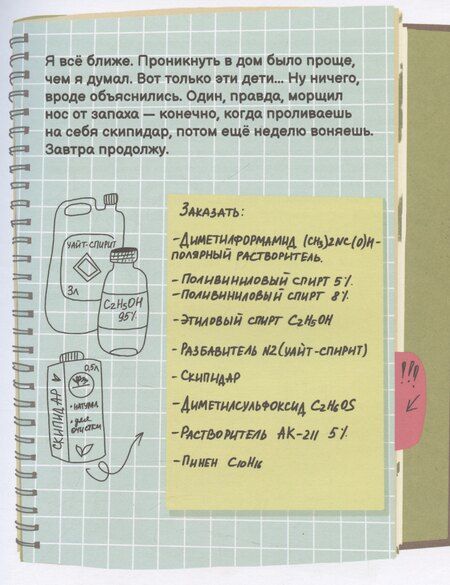 Я всё ближе. Проникнуть в дом было проще,
чем я думал. Вот только эти дети... Ну ничего,
вроде объяснились. Один, правда, морщил
нос от запаха — конечно, когда проливаешь
на себя скипидар, потом ещё неделю воняешь.
Завтра продолжу.
УАЙТ-СПИРИТ
3Л
C2H5OH
95%
0,5Л
СКИПИДАР
• НАТУРАЛ
• ДЛЯ
ОЧИСТКИ
ЗАКАЗАТЬ:
-ДИМЕТИЛФОРМАМИД (CH3)2NC(O)H-
ПОЛЯРНЫЙ РАСТВОРИТЕЛЬ.
-ПОЛИВИНИЛОВЫЙ СПИРТ 5%
-ПОЛИВИНИЛОВЫЙ СПИРТ 8%
-ЭТИЛОВЫЙ СПИРТ C2H5OH
-РАЗБАВИТЕЛЬ N2(УАЙТ-СПИРИТ)
-СКИПИДАР
-ДИМЕТИЛСУЛЬФОКСИД C2H6OS
-РАСТВОРИТЕЛЬ АК-211 5%
-ПИНЕН C10H16
!!!